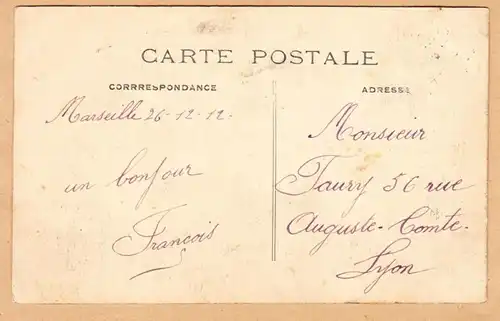 CARTE POSTALE
CORRRESPONDANCE
ADRESSE
Marseille 26-12-12-
un bonjour
François
Monsieur
Faury 56 rue
Auguste-Comte-
Lyon